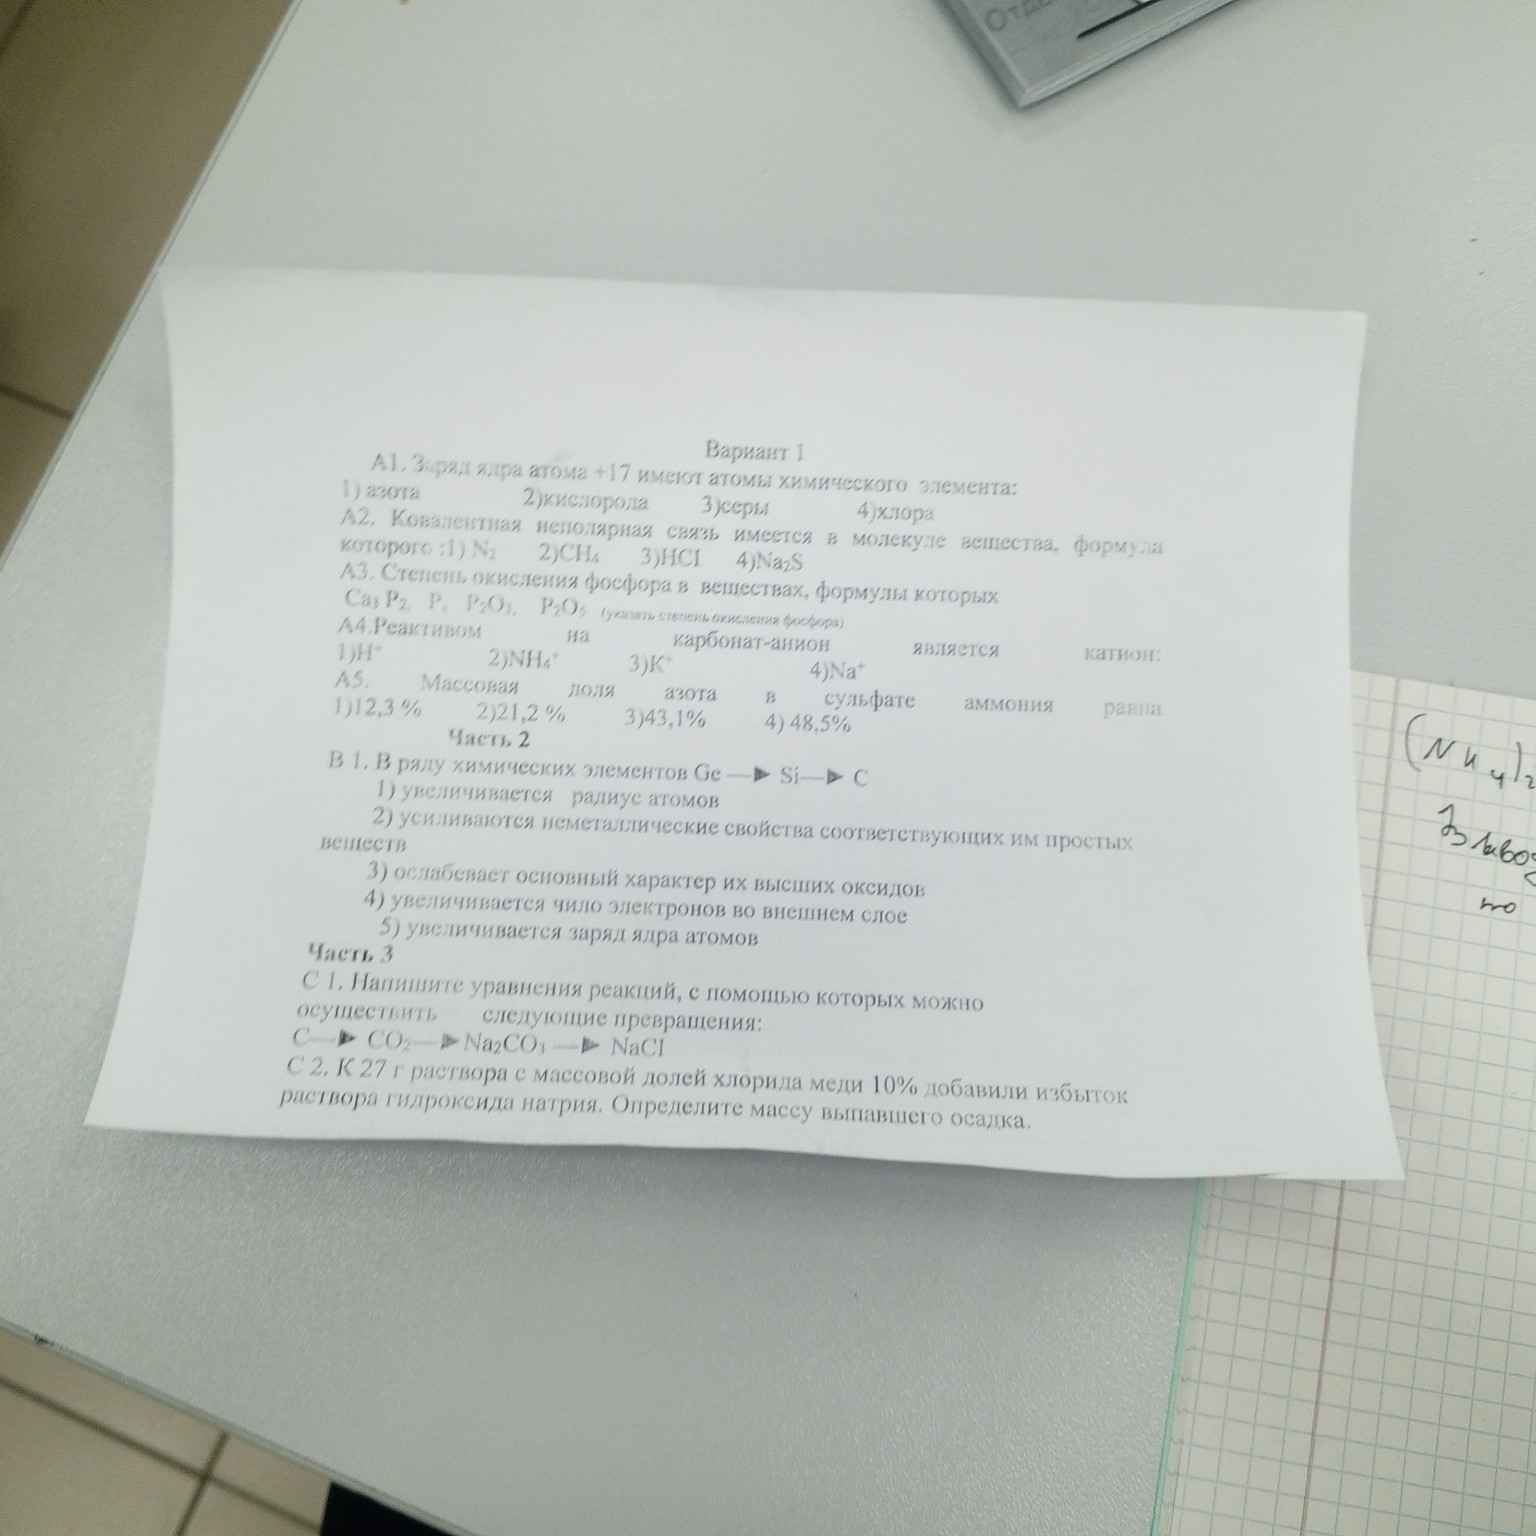 Отде
Вариант 1
А1. Заряд ядра атома +17 имеют атомы химического элемента:
1) азота 2)кислорода 3)серы 4)хлора
А2. Ковалентная неполярная связь имеется в молекуле вещества, формула
которого :1) N₂ 2)CH₄ 3)HCI 4)Na₂S
А3. Степень окисления фосфора в веществах, формулы которых
Ca₃ P₂, P, P₂O₃, P₂O₅ (указать степень окисления фосфора)
А4.Реактивом на карбонат-анион является катион:
1)H⁺ 2)NH₄⁺ 3)K⁺ 4)Na⁺
А5. Массовая доля азота в сульфате аммония равна
1)12,3 % 2)21,2 % 3)43,1% 4) 48,5%
Часть 2
В 1. В ряду химических элементов Ge → Si → C
1) увеличивается радиус атомов
2) усиливаются неметаллические свойства соответствующих им простых
веществ
3) ослабевает основный характер их высших оксидов
4) увеличивается чило электронов во внешнем слое
5) увеличивается заряд ядра атомов
Часть 3
С 1. Напишите уравнения реакций, с помощью которых можно
осуществить следующие превращения:
C → CO₂ → Na₂CO₃ → NaCI
С 2. К 27 г раствора с массовой долей хлорида меди 10% добавили избыток
раствора гидроксида натрия. Определите массу выпавшего осадка.
(NH₄)₂
по